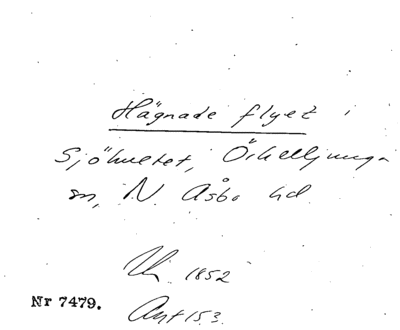 Hägnade flyet i
Sjöhultet, Örkelljunga
sn, N. Åsbo hd
1852
Nr 7479.